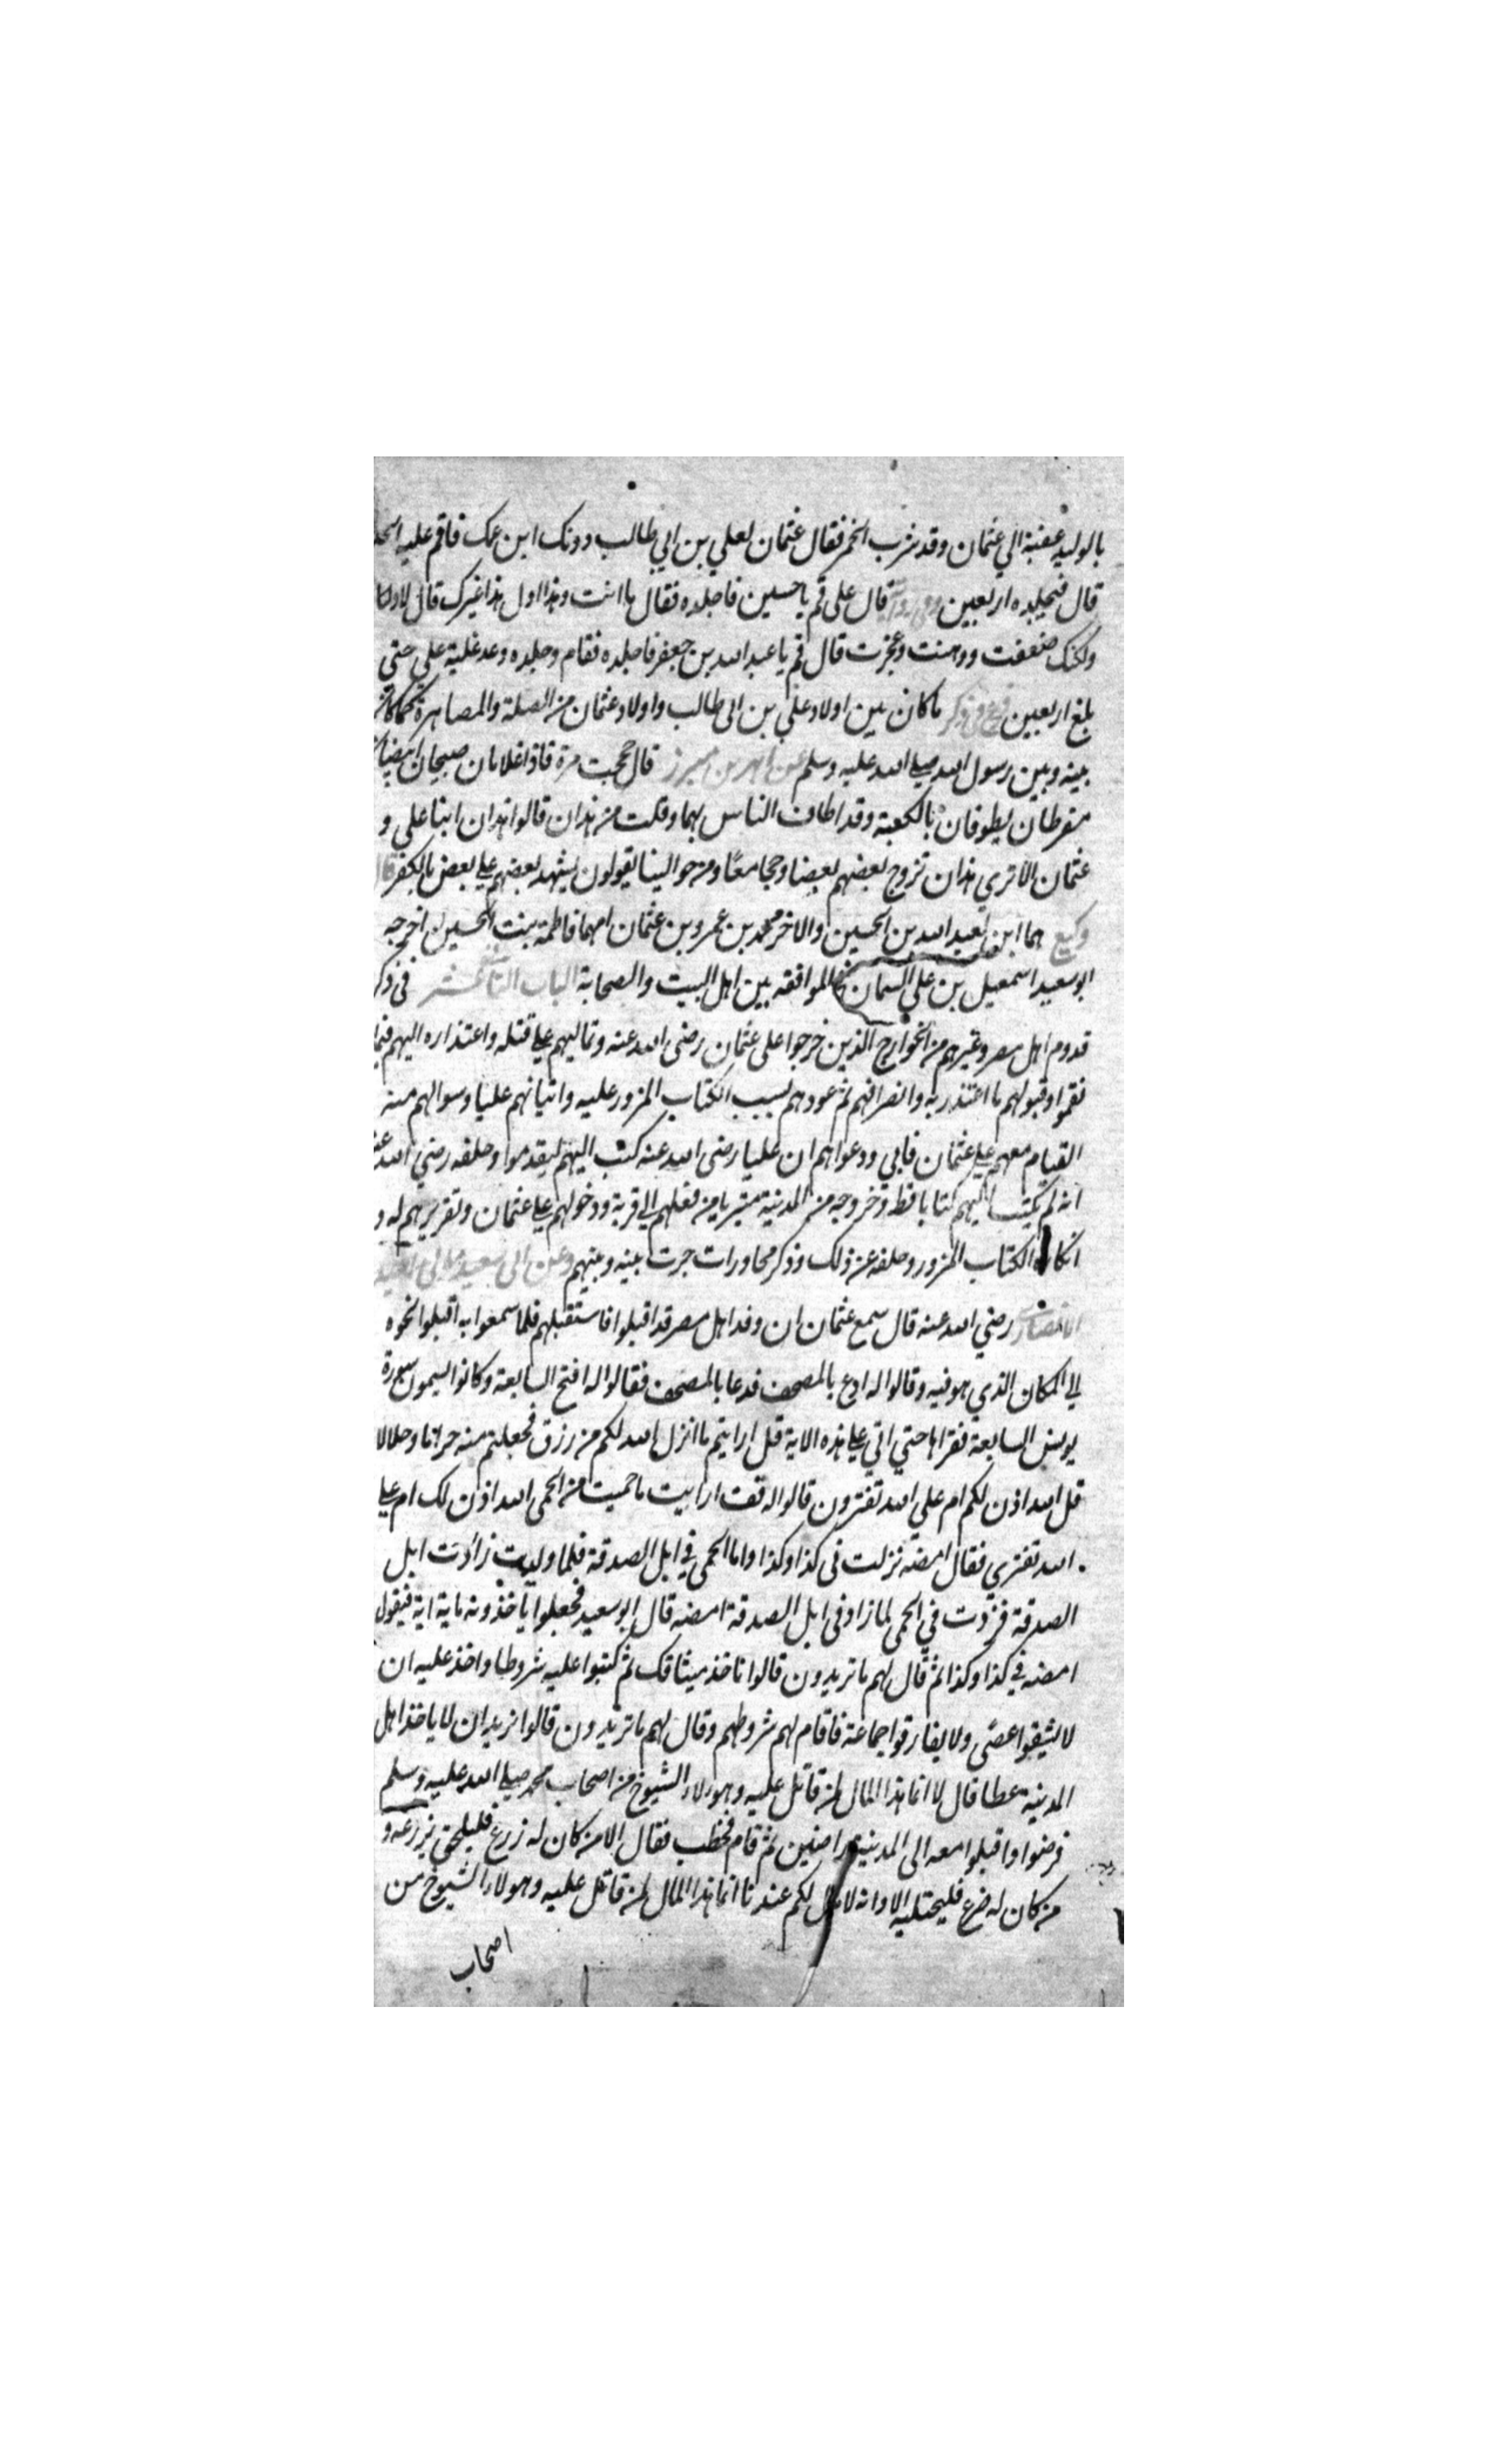 بالوليد عقبة الي عثمان وقد شرب الخمر فقال عثمان لعلي بن ابي طالب دونك ابن عمك فاقم عليه الحد
قال فيجلده اربعين وفي رواية قال علي قم يا حسين فاجلده فقال ما انت وهذا اول هذا غيرك قال لا ولكنك
ولكنك ضعفت ووهنت وعجزت قال قم يا عبد الله بن جعفر فاجلده فقام وجلده وعد غلية علي حتي
بلغ اربعين ما كان بين اولاد علي بن ابي طالب واولاد عثمان من الصلة والمصاهرة كما كان
بينه وبين رسول الله صلي الله عليه وسلم عن قال حججت مرة فاذا غلامان صبيحان ابيضان
مقرطان يطوفان بالكعبة وقد اطاف الناس بهما وقلت من هذان قالوا هذان ابنا علي و
عثمان الا تري هذان تزوج بعضهم بعضا وحجا معًا ومن حوالينا يقولون يشهد بعضهم علي بعض بالكفر قال
وكيع هما ابن لعبد الله بن الحسين والاخر محمد بن عمرو بن عثمان امهما فاطمة بنت الحسين اخرجه
ابو سعيد اسمعيل بن علي السمان الموافقه بين اهل البيت والصحابة الباب الثاني عشر في ذكر
قدوم اهل مصر وغيرهم من الخوارج الذين خرجوا علي عثمان رضي الله عنه وتماليهم علي قتله واعتذاره اليهم فيما
نقموا وقبولهم ما اعتذر به وانصرافهم ثم عودهم بسبب الكتاب المزور عليه واتيانهم عليا وسوالهم منه
القيام معهم علي عثمان فابي ودعواهم ان عليا رضي الله عنه كتب اليهم ليقدموا وحلفه رضي الله عنه
انه لم يكتب اليهم كتابا قط وخروجه من المدينة متبريا من فعلهم الي قرية ودخولهم علي عثمان وتقريرهم له و
انكاره الكتاب المزور وحلفه عن ذلك وذكر محاورات جرت بينه وبينهم وعن ابي سعيد مولي ابي اسيد
الانصاري رضي الله عنه قال سمع عثمان ان وفد اهل مصر قد اقبلوا فاستقبلهم فلما سمعوا به اقبلوا نحوه
الي المكان الذي هو فيه وقالوا له ادع بالمصحف فدعا بالمصحف فقالوا له افتح السابعة وكانوا يسمون سورة
يونس السابعة فقراها حتي اتي علي هذه الاية قل ارايتم ما انزل الله لكم من رزق فجعلتم منه حراما وحلالا
قل الله اذن لكم ام علي الله تفترون قالوا له قف ارايت ما حميت من الحمي الله اذن لك ام علي
الله تفتري فقال امضه نزلت في كذا وكذا واما الحمي في ابل الصدقة فلما وليت زادت ابل
الصدقة فزدت في الحمي لما زاد في ابل الصدقة امضه قال ابو سعيد فجعلوا ياخذونه باية اية فيقول
امضه في كذا وكذا ثم قال لهم ما تريدون قالوا ناخذ ميثاقك ثم كتبوا عليه شروطا واخذ عليه ان
لا يشقوا عصًى ولا يفارقوا جماعة فاقام لهم شروطهم وقال لهم ما تريدون قالوا نريد ان لا ياخذ اهل
المدينة عطا قال لا انما هذا المال لمن قاتل عليه وهولاء الشيوخ من اصحاب محمد صلي الله عليه وسلم
فرضوا واقبلوا معه الي المدينة راضين ثم قام فخطب فقال الا من كان له زرع فليلحق بزرعه و
من كان له ضرع فليحتلبه الا وانه لا مال لكم عندنا انما هذا المال لمن قاتل عليه وهولاء الشيوخ من
اصحاب